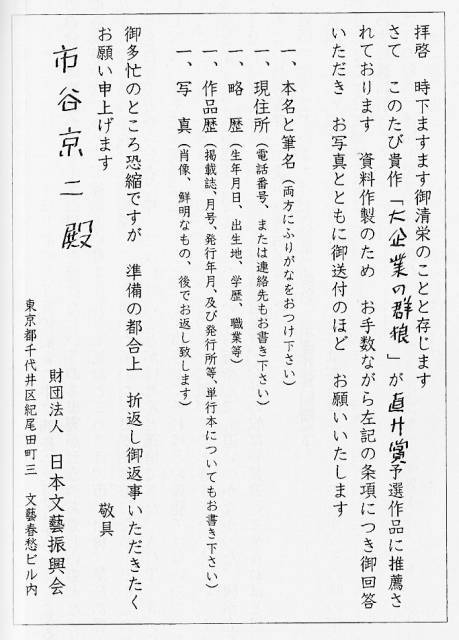 拝啓　時下ますます御清栄のことと存じます
さて　このたび貴作「大企業の群狼」が直廾賞予選作品に推薦さ
れております　資料作製のため　お手数ながら左記の条項につき御回答
いただき　お写真とともに御送付のほど　お願いいたします
一、本名と筆名（両方にふりがなをおつけ下さい）
一、現住所（電話番号、または連絡先もお書き下さい）
一、略　歴（生年月日、出生地、学歴、職業等）
一、作品歴（掲載誌、月号、発行年月、及び発行所等、単行本についてもお書き下さい）
一、写　真（肖像、鮮明なもの、後でお返し致します）
御多忙のところ恐縮ですが　準備の都合上　折返し御返事いただきたく
お願い申上げます
敬具
市谷京二殿
財団法人　日本文藝振興会
東京都千代井区紀尾田町三　文藝春愁ビル内